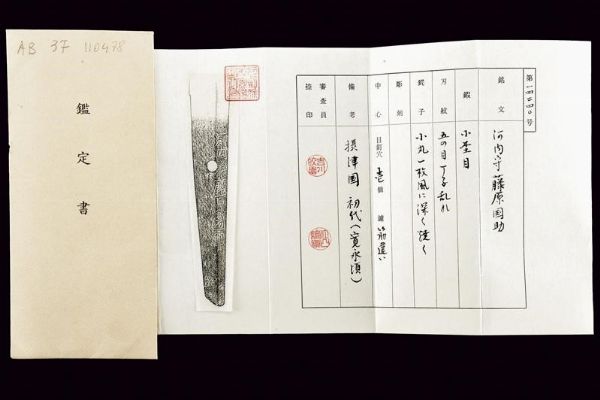 AB 37 110498
鑑定書
第一四二四〇号
銘文 河内守藤原国助
鍛 小杢目
刃紋 五の目丁子乱れ
鋩子 小丸一枚風に深く焼く
彫刻
中心 目釘穴 壱個 鑢 筋違い
備考 摂津国 初代(寛永頃)
審査員
捺印